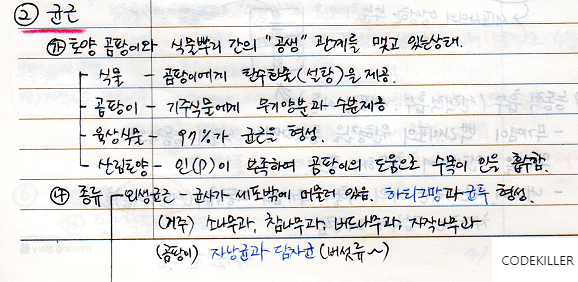 ② 균근
㉮ 토양 곰팡이와 식물뿌리 간의 "공생" 관계를 맺고 있는상태.
식물 - 곰팡이에게 탄수화물(설탕)을 제공.
곰팡이 - 기주식물에게 무기양분과 수분제공
육상식물 - 97%가 균근을 형성.
산림토양 - 인(P)이 부족하여 곰팡이의 도움으로 수목이 인을 흡수함.
㉯ 종류 외생균근 - 균사가 세포밖에 머물러 있음. 하티그망과 균투 형성.
(기주) 소나무과, 참나무과, 버드나무과, 자작나무과
(곰팡이) 자낭균과 담자균 (버섯류~)
CODEKILLER